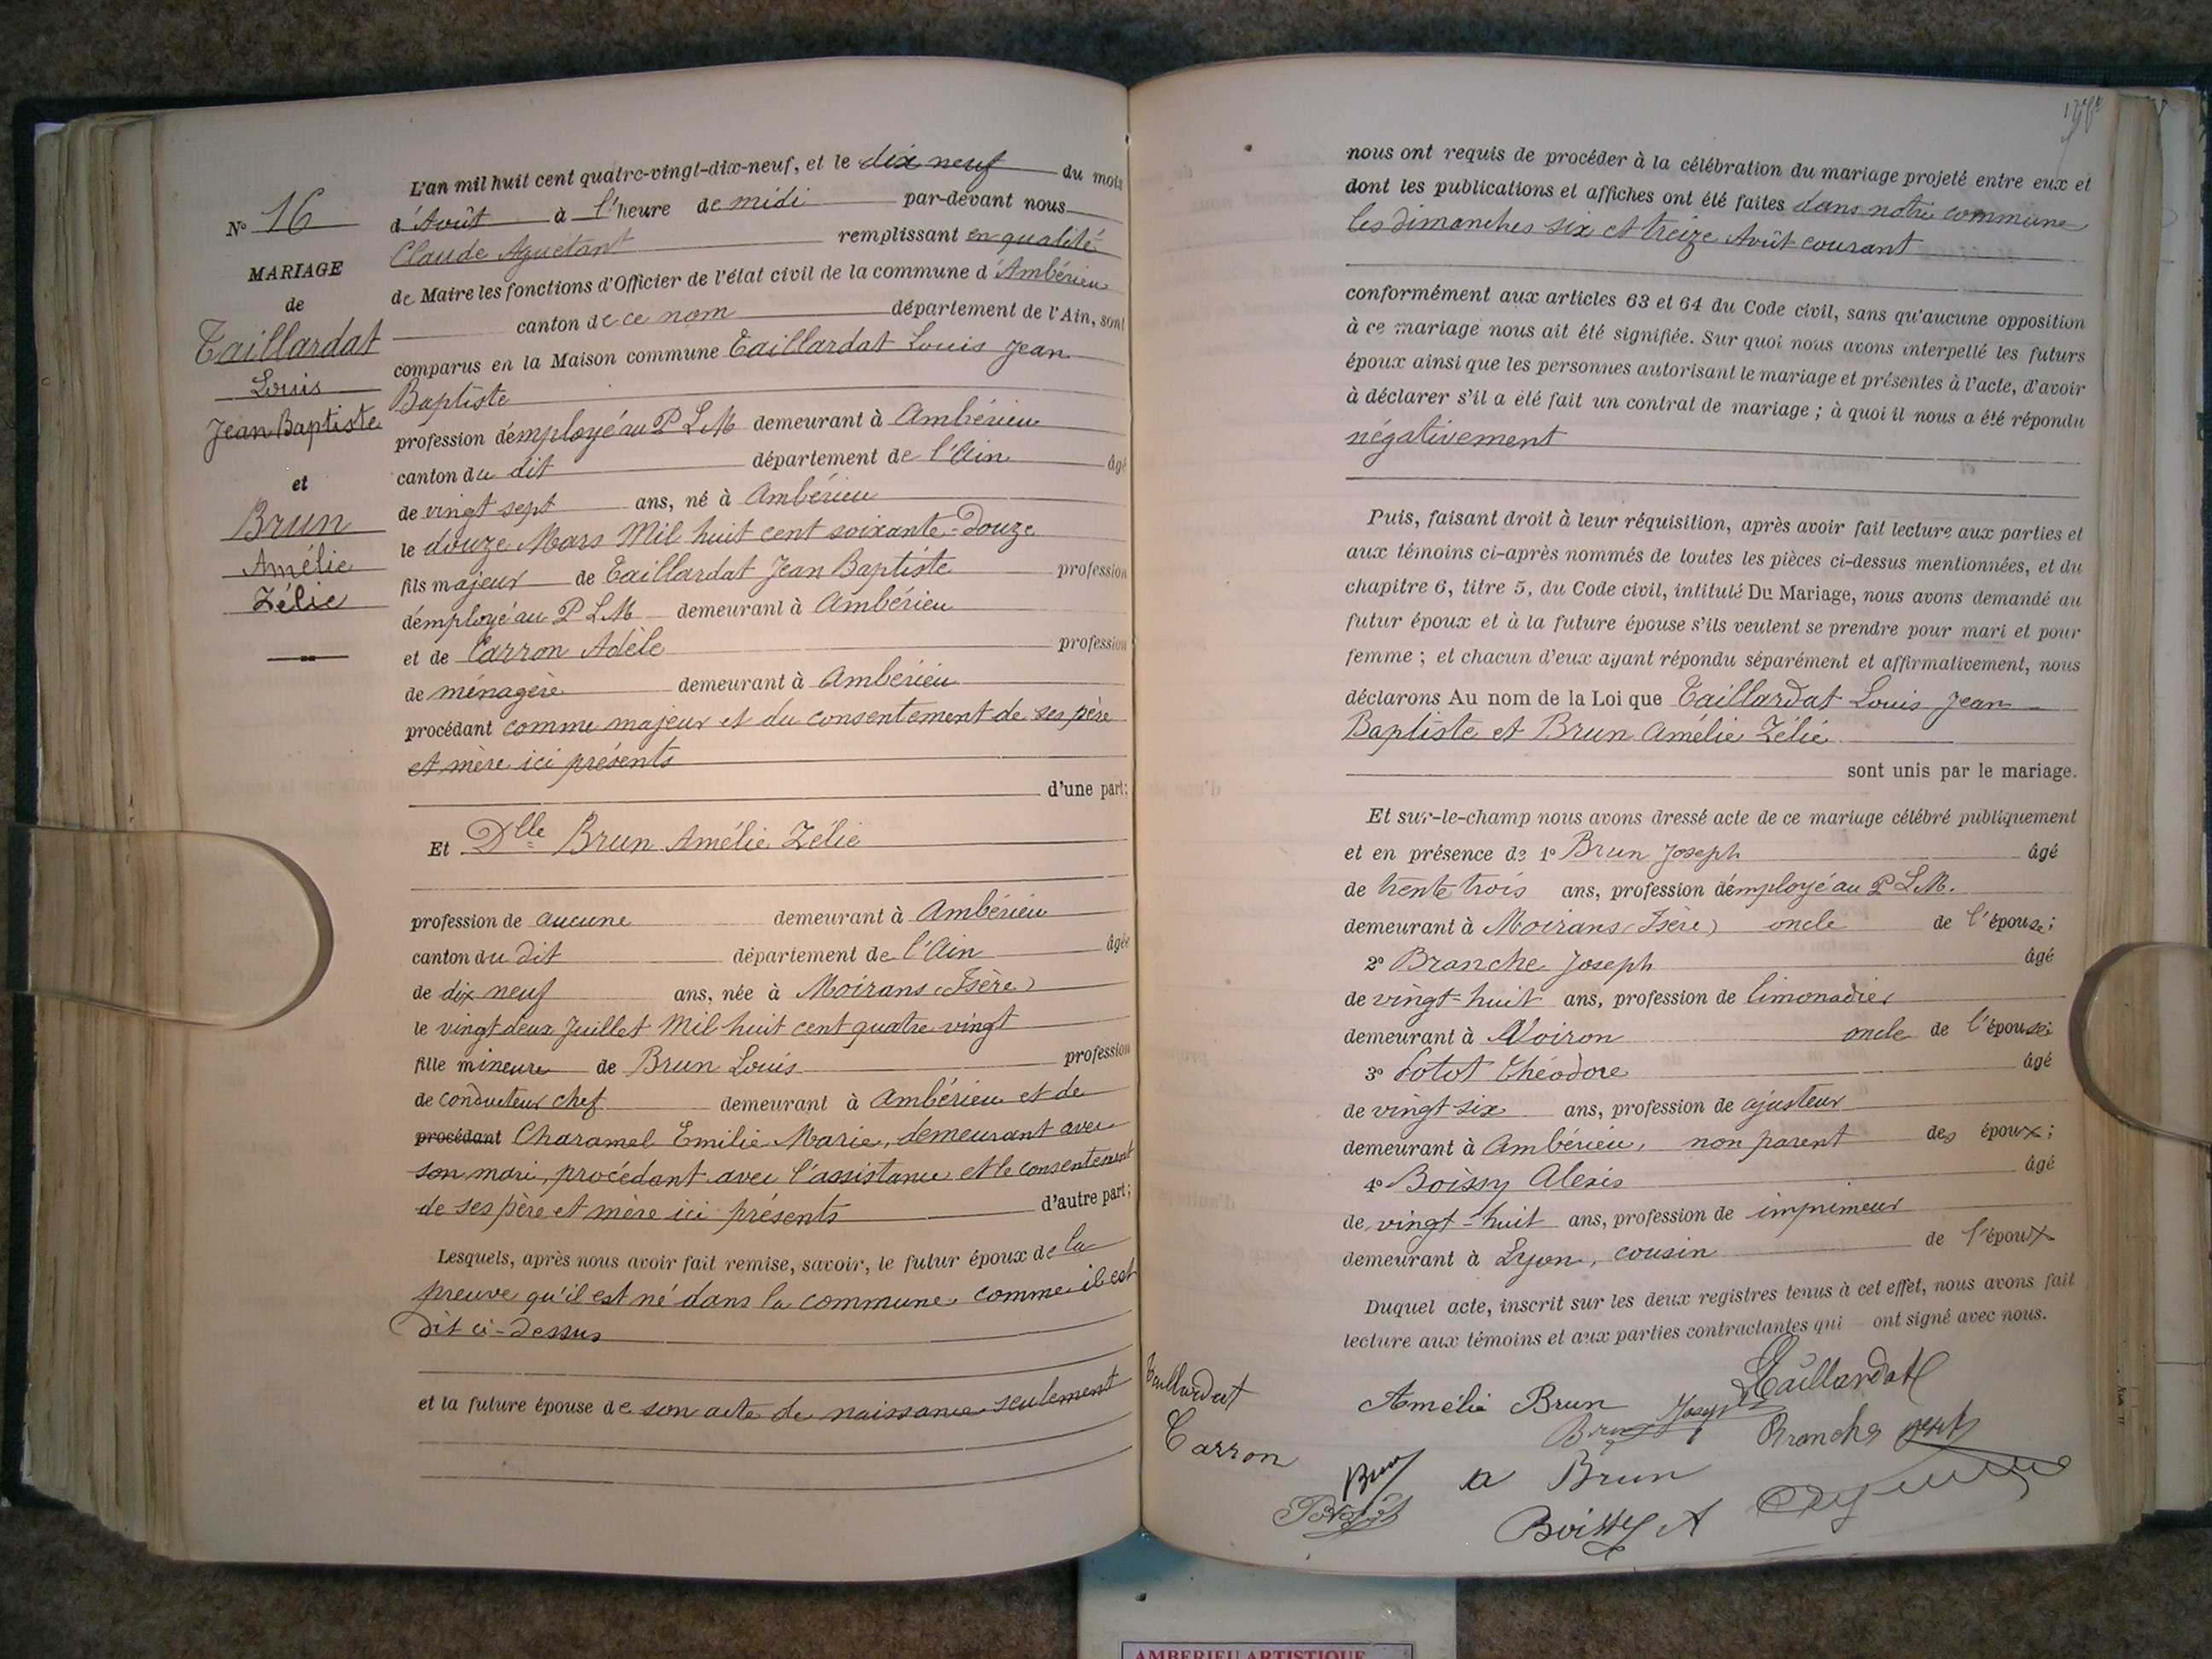 N° 16
MARIAGE
de
Taillardat
Louis
Jean Baptiste
et
Brun
Amélie
Zélie
L'an mil huit cent quatre-vingt-dix-neuf, et le dix neuf du mois
d'Août à l'heure de midi par-devant nous
Claude Aguétant remplissant en qualité
de Maire les fonctions d'Officier de l'état civil de la commune d'Ambérieu
canton de ce nom département de l'Ain, sont
comparus en la Maison commune Taillardat Louis Jean
Baptiste
profession d'employé au P L M demeurant à Ambérieu
canton du dit département de l'Ain âgé
de vingt sept ans, né à Ambérieu
le douze Mars Mil huit cent soixante-Douze
fils majeur de Taillardat Jean Baptiste profession
d'employé au P L M demeurant à Ambérieu
et de Carron Adèle profession
de ménagère demeurant à Ambérieu
procédant comme majeur et du consentement de ses père
et mère ici présents
d'une part;
Et Dlle Brun Amélie Zélie
profession de aucune demeurant à Ambérieu
canton du dit département de l'Ain âgée
de dix neuf ans, née à Moirans (Isère)
le vingt deux Juillet Mil huit cent quatre vingt
fille mineure de Brun Louis profession
de conducteur chef demeurant à Ambérieu et de
procédant Charamel Emilie Marie, demeurant avec
son mari, procédant avec l'assistance et le consentement
de ses père et mère ici présents d'autre part;
Lesquels, après nous avoir fait remise, savoir, le futur époux de la
preuve qu'il est né dans la commune, comme il est
dit ci-dessus
et la future épouse de son acte de naissance seulement
nous ont requis de procéder à la célébration du mariage projeté entre eux et
dont les publications et affiches ont été faites dans notre commune
les dimanches six et treize Août courant
conformément aux articles 63 et 64 du Code civil, sans qu'aucune opposition
à ce mariage nous ait été signifiée. Sur quoi nous avons interpellé les futurs
époux ainsi que les personnes autorisant le mariage et présentes à l'acte, d'avoir
à déclarer s'il a été fait un contrat de mariage ; à quoi il nous a été répondu
négativement
Puis, faisant droit à leur réquisition, après avoir fait lecture aux parties et
aux témoins ci-après nommés de toutes les pièces ci-dessus mentionnées, et du
chapitre 6, titre 5, du Code civil, intitulé Du Mariage, nous avons demandé au
futur époux et à la future épouse s'ils veulent se prendre pour mari et pour
femme ; et chacun d'eux ayant répondu séparément et affirmativement, nous
déclarons Au nom de la Loi que Taillardat Louis Jean
Baptiste et Brun Amélie Zélie
sont unis par le mariage.
Et sur-le-champ nous avons dressé acte de ce mariage célébré publiquement
et en présence de 1° Brun Joseph âgé
de trente trois ans, profession d'employé au P L M.
demeurant à Moirans (Isère) oncle de l'épouse;
2° Branche Joseph âgé
de vingt-huit ans, profession de limonadier
demeurant à Voiron oncle de l'épouse;
3° Théodore âgé
de vingt six ans, profession de ajusteur
demeurant à Ambérieu, non parent des époux;
4° Boissy Alexis âgé
de vingt-huit ans, profession de imprimeur
demeurant à Lyon, cousin de l'époux
Duquel acte, inscrit sur les deux registres tenus à cet effet, nous avons fait
lecture aux témoins et aux parties contractantes qui ont signé avec nous.
Taillardat
Amélie Brun Taillardat
Brun Joseph Branche
Carron
Brun a Brun
Boissy A
AMBERIEU ARTISTIQUE